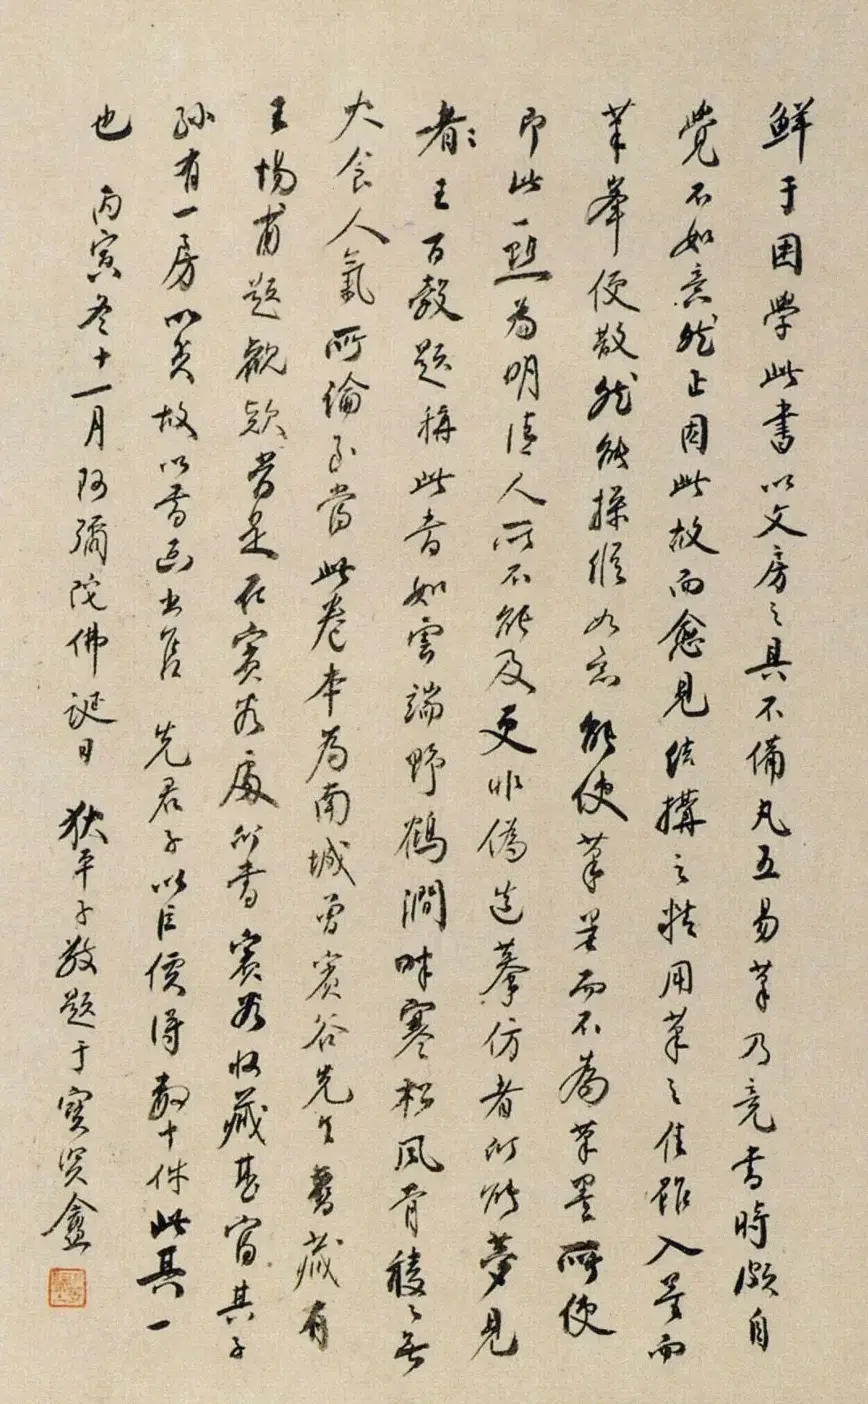 鮮于困學此書以文房之具不備凡五易筆乃竟書時頗自
覺不如意然正因此故而愈見結構之精用筆之佳雖入墨而
筆峯便散然能操縱如意能使筆墨而不為筆墨所使
即此一點為明清人所不能及更非偽造摹仿者所能夢見
者王百穀題稱此書如雲端野鶴澗畔寒松風骨稜稜無
火食人氣所論至當此卷本為南城曾賓谷先生舊藏有
王惕甫題觀款當是在賓谷處所書賓谷收藏甚富其子
孫有一房以貧故以書画出售先君子以巨價得數十件此其一
也 丙寅冬十一月阿彌陀佛誕日 狄平子敬題于寶賢盦